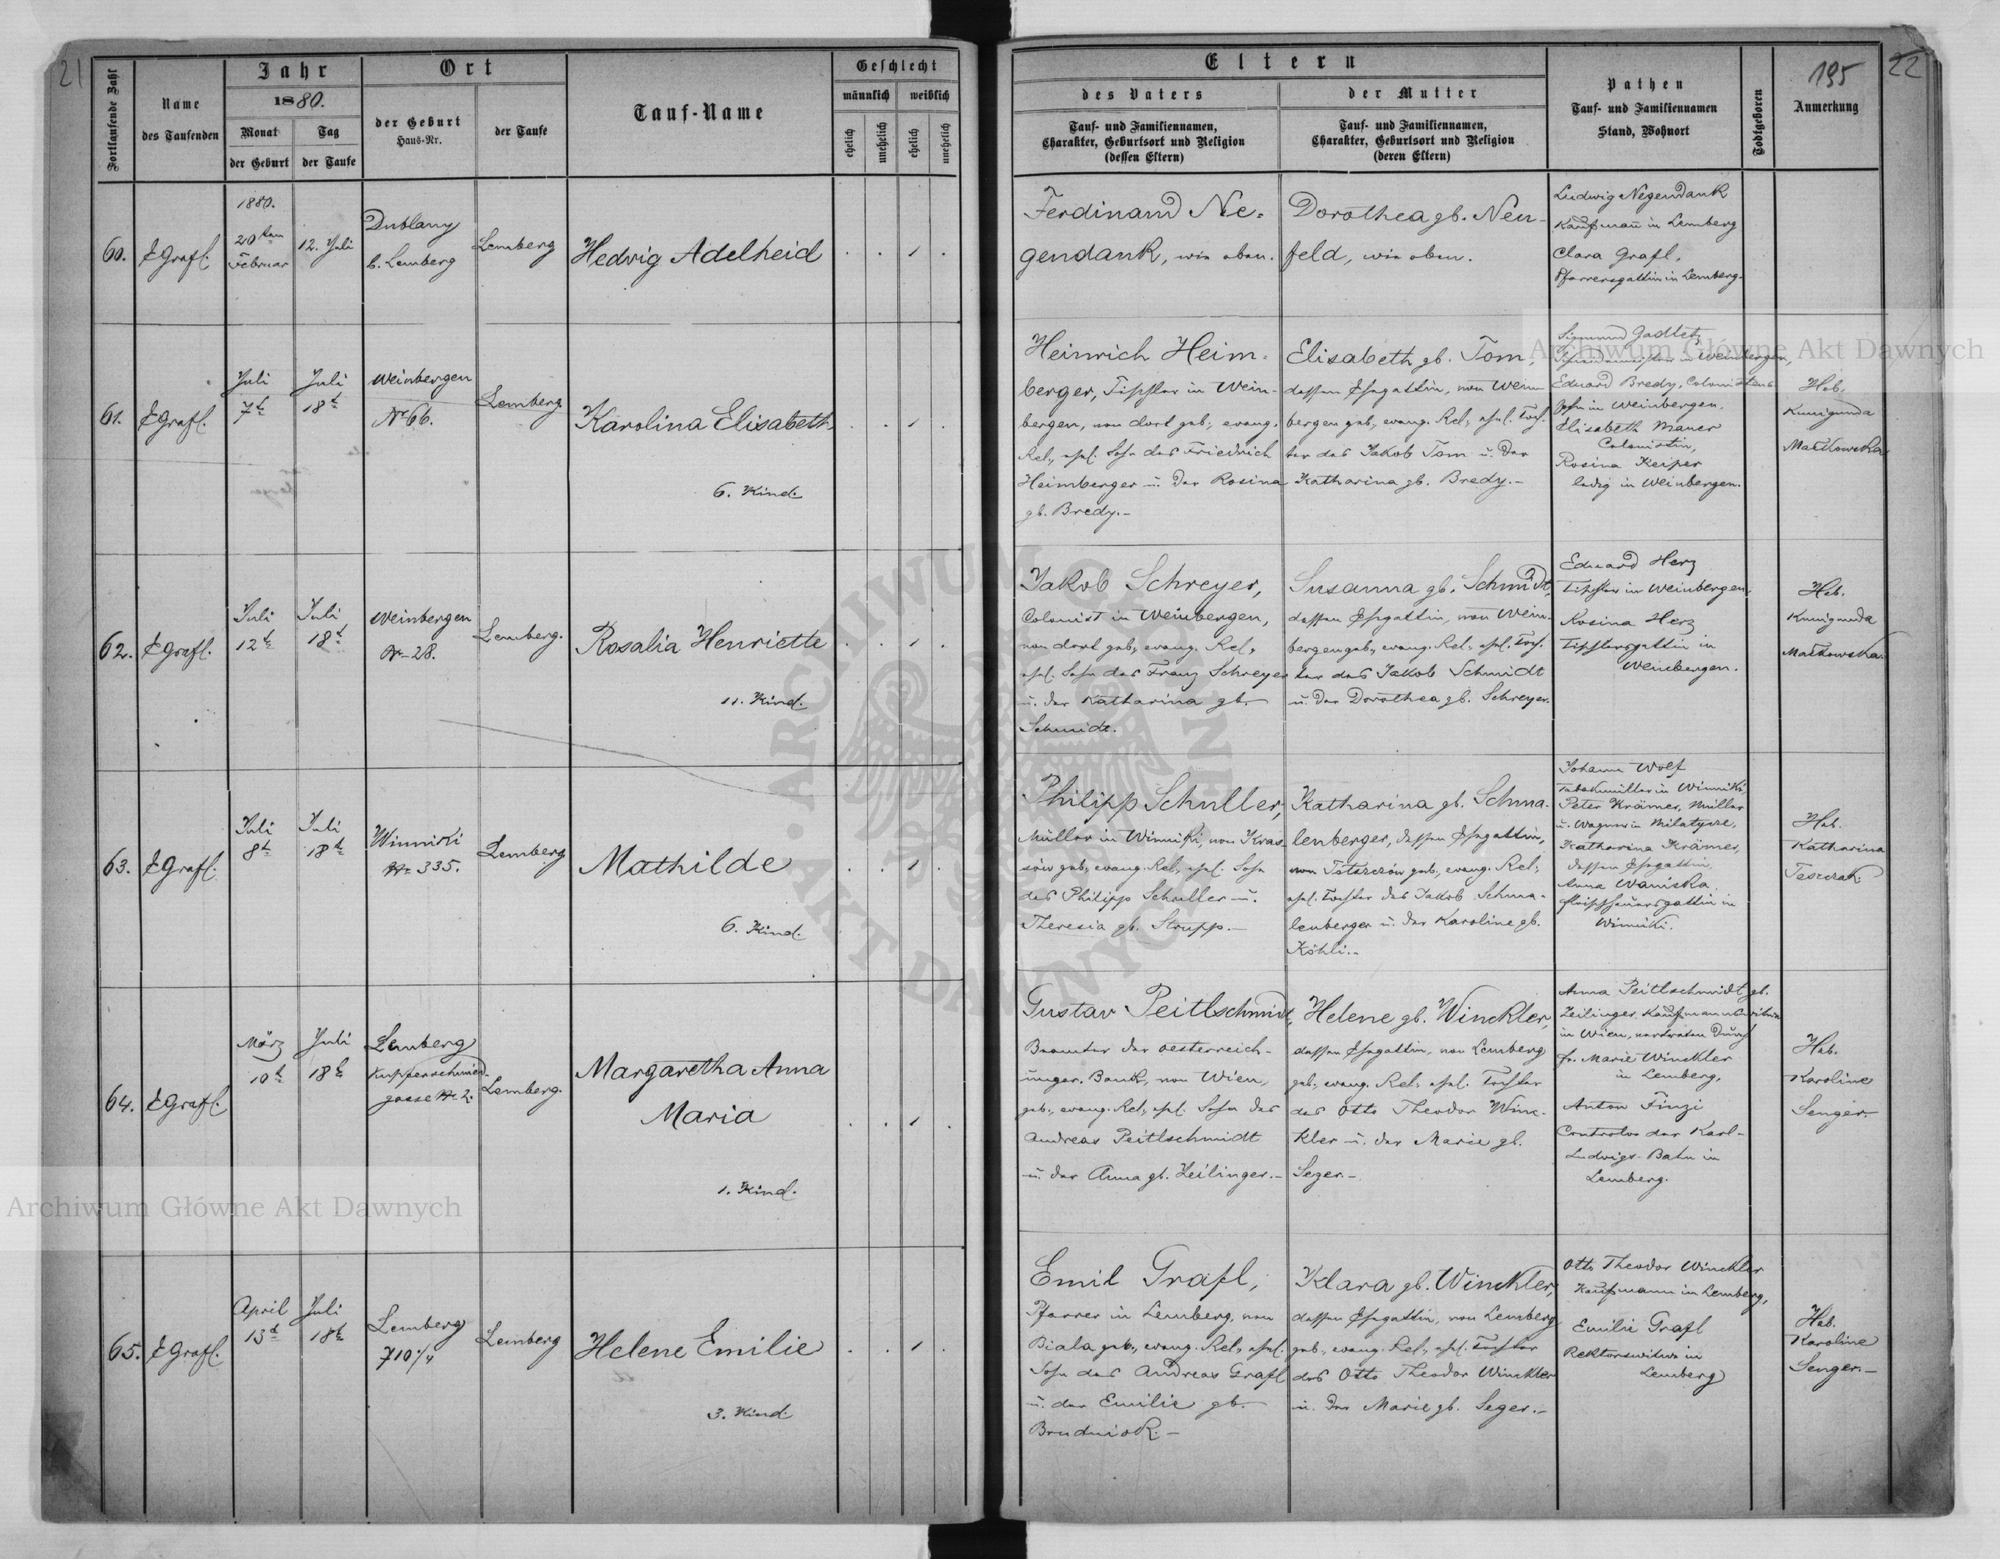 21
Fortlaufende Zahl
Name
des Taufenden
Jahr
1880.
Monat
der Geburt
Tag
der Taufe
Ort
der Geburt
Haus-Nr.
der Taufe
Tauf-Name
Geschlecht
männlich
weiblich
ehelich
unehelich
ehelich
unehelich
Eltern
des Vaters
Tauf- und Familiennamen,
Charakter, Geburtsort und Religion
(dessen Eltern)
der Mutter
Tauf- und Familiennamen,
Charakter, Geburtsort und Religion
(deren Eltern)
Pathen
Tauf- und Familiennamen
Stand, Wohnort
Todtgeboren
195
Anmerkung
22
60.
E Grafl.
1880.
20ten
Februar
12. Juli
Dublany
b. Lemberg
Lemberg
Hedwig Adelheid
Ferdinand Ne-
gendank, wie oben.
Dorothea gb. Neu-
feld, wie oben.
Ludwig Negendank
Kaufmann in Lemberg
Clara Grafl,
Pfarrersgattin in Lemberg.
61.
E Grafl.
Juli
7t
Juli
18t
Weinbergen
Nr 66.
Lemberg
Karolina Elisabeth
6. Kind.
Heinrich Heim-
berger, Tischler in Wein-
bergen, von dort geb., evang.
Rel., ehel. Sohn des Friedrich
Heimberger u. der Rosina
gb. Bredy.-
Elisabeth gb. Tom,
dessen Ehegattin, von Wein
bergen geb., evang. Rel., ehel. Toch.
ter des Jakob Tom u. der
Katharina gb. Bredy.-
Sigmund
in Weinbergen,
Eduard Bredy, Colonistens
Sohn in Weinbergen.
Elisabeth Mauer
Colonistin,
Rosina Keiper
ledig in Weinbergen.
Heb.
Kunigunda
Malkowska
62.
E Grafl.
Juli
12t
Juli
18t
Weinbergen
Nr 28.
Lemberg.
Rosalia Henriette
11. Kind.
Jakob Schreyer,
Colonist in Weinbergen,
von dort geb., evang. Rel.,
ehel. Sohn des Franz Schreyer
u. der Katharina gb.
Schmidt.
Susanna gb. Schmidt,
dessen Ehegattin, von Wein-
bergen geb., evang. Rel., ehel. Toch.
ter des Jakob Schmidt
u. der Dorothea gb. Schreyer.
Eduard Herz
Tischler in Weinbergen,
Rosina Herz
Tischlersgattin in
Weinbergen.
Heb.
Kunigunda
Malkowska.
63.
E Grafl.
Juli
8t
Juli
18t
Winniki
Nr 335.
Lemberg
Mathilde
6. Kind.
Philipp Schuller,
Müller in Winniki, von Kras-
sów geb., evang. Rel., ehel. Sohn
des Philipp Schuller u.
Theresia gb. Strupp.-
Katharina gb. Schma-
lenberger, dessen Ehegattin,
von geb., evang. Rel.,
ehel. Tochter des Jakob Schma-
lenberger u. der Karoline gb.
Köhli.-
Johann Wolf
in Winniki
Peter Krämer, Müller
u. Wagner in Milatycze,
Katharina Krämer,
dessen Ehegattin,
Anna Waniska,
Fleischhauersgattin in
Winniki.
Heb.
Katharina
64.
E Grafl.
März
10t
Juli
18t
Lemberg
Kupferschmied-
gasse Nr 2.
Lemberg.
Margaretha Anna
Maria
1. Kind.
Gustav Peitlschmidt,
Beamter der oesterreich-
ungar. Bank, von Wien,
geb., evang. Rel., ehel. Sohn des
Andreas Peitlschmidt
u. der Anna gb. Zeilinger.-
Helene gb. Winckler,
dessen Ehegattin, von Lemberg
geb., evang. Rel., ehel. Tochter
des Otto Theodor Winc-
kler u. der Marie gb.
Seger.-
Anna Peitlschmidt gb.
Zeilinger, Kaufmannswitwe
in Wien, vertreten durch
Fr. Marie Winckler
in Lemberg,
Anton Finzi
Controlor der Karl-
Ludwigs-Bahn in
Lemberg.
Heb.
Karoline
Senger.
65.
E Grafl.
April
13t
Juli
18t
Lemberg
710 1/4
Lemberg
Helene Emilie
3. Kind.
Emil Grafl,
Pfarrer in Lemberg, von
Biala geb., evang. Rel., ehel.
Sohn des Andreas Grafl
u. der Emilie gb.
Brudniok.-
Klara gb. Winckler,
dessen Ehegattin, von Lemberg
geb., evang. Rel., ehel. Tochter
des Otto Theodor Winckler
u. der Marie gb. Seger.-
Otto Theodor Winckler
Kaufmann in Lemberg,
Emilie Grafl
Rektorswitwe in
Lemberg
Heb.
Karoline
Senger.-
Archiwum Główne Akt Dawnych
Archiwum Główne Akt Dawnych
ARCHIWUM GŁÓWNE AKT DAWNYCH